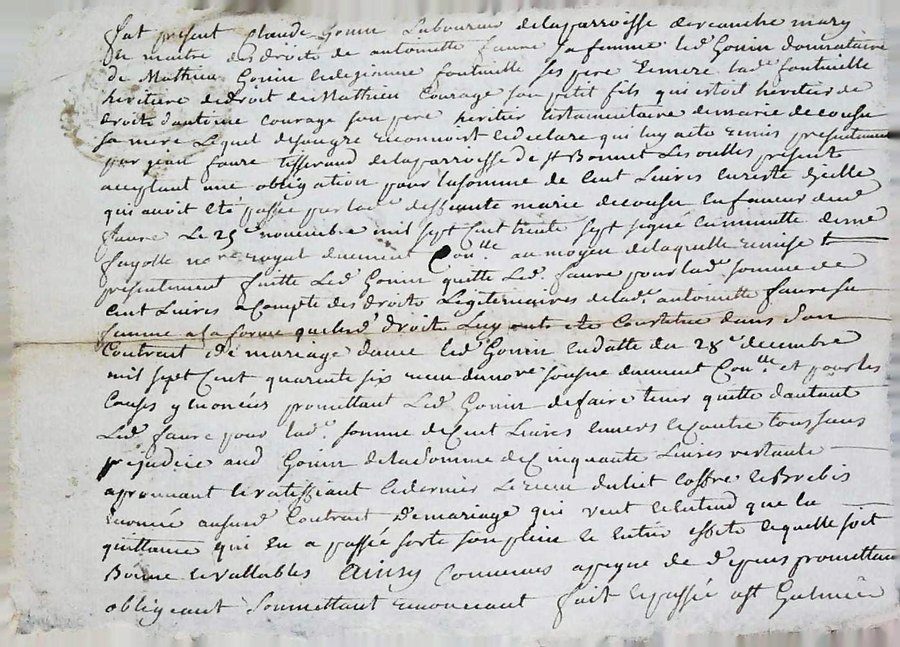 fut present Claude Gonin Laboureur de la parroisse de veauche mary
et maitre des droits de antoinette faure sa femme led Gonin donnataire
de Mathieu Gonin et de pierrre fontnielle ses pere et mere lad.e fontnielle
heritiere de droit de Mathieu Courage son petit fils qui estoit heritier de
droit d'antoine Courage son pere heritier testamentaire de marie decousu
sa mere Lequel de son gre reconnoit et declare qui luy a ete remis presentement
par jean faure tisserand de la parroisse de st Bonnet Les oulles present
acceptant une obligation pour la somme de Cent Livres en reste de celle
qui avoit ete passée par lad.e deffunte marie decousu en faveur dud
faure Le 25.e novembre mil sept Cent trente sept signé en minutte de me
fayolle no.re royal duement Con.lle au moyen de laquelle remise
presentement faitte Led. Gonin quitte Led. faure pour lad.e somme de
Cent Livres a Compte des droits Legitimaires de lad.e antoinette faure sa
femme a la forme que lesd.s droits Luy ont ete Constitué dans son
Contrait de mariage d'avec led. Gonin en datte du 28.e decembre
mil sept Cent quarente six receu du no.re sousné duement Con.llé et pour les
Causes y enoncées promettant Led. Gonin de faire tenir quitte d'autant
Led. faure pour lad.e somme de Cent Livres envers et contre tous sans
prejudice aud. Gonin de la somme de Cinquante Livres restante
aprouvant et ratiffiant ce dernier Le receu du liet Coffre et Brebis
enoncé aususd. Contrait De mariage qui veut et entend que la
quittance qui en a passée sorte son plein et entier effet et quelle soit
Bonne et vallable Ainsy Convenus a peyne de d'epens promettant
obligeant soumettant renoncant fait et passé a st Galmier